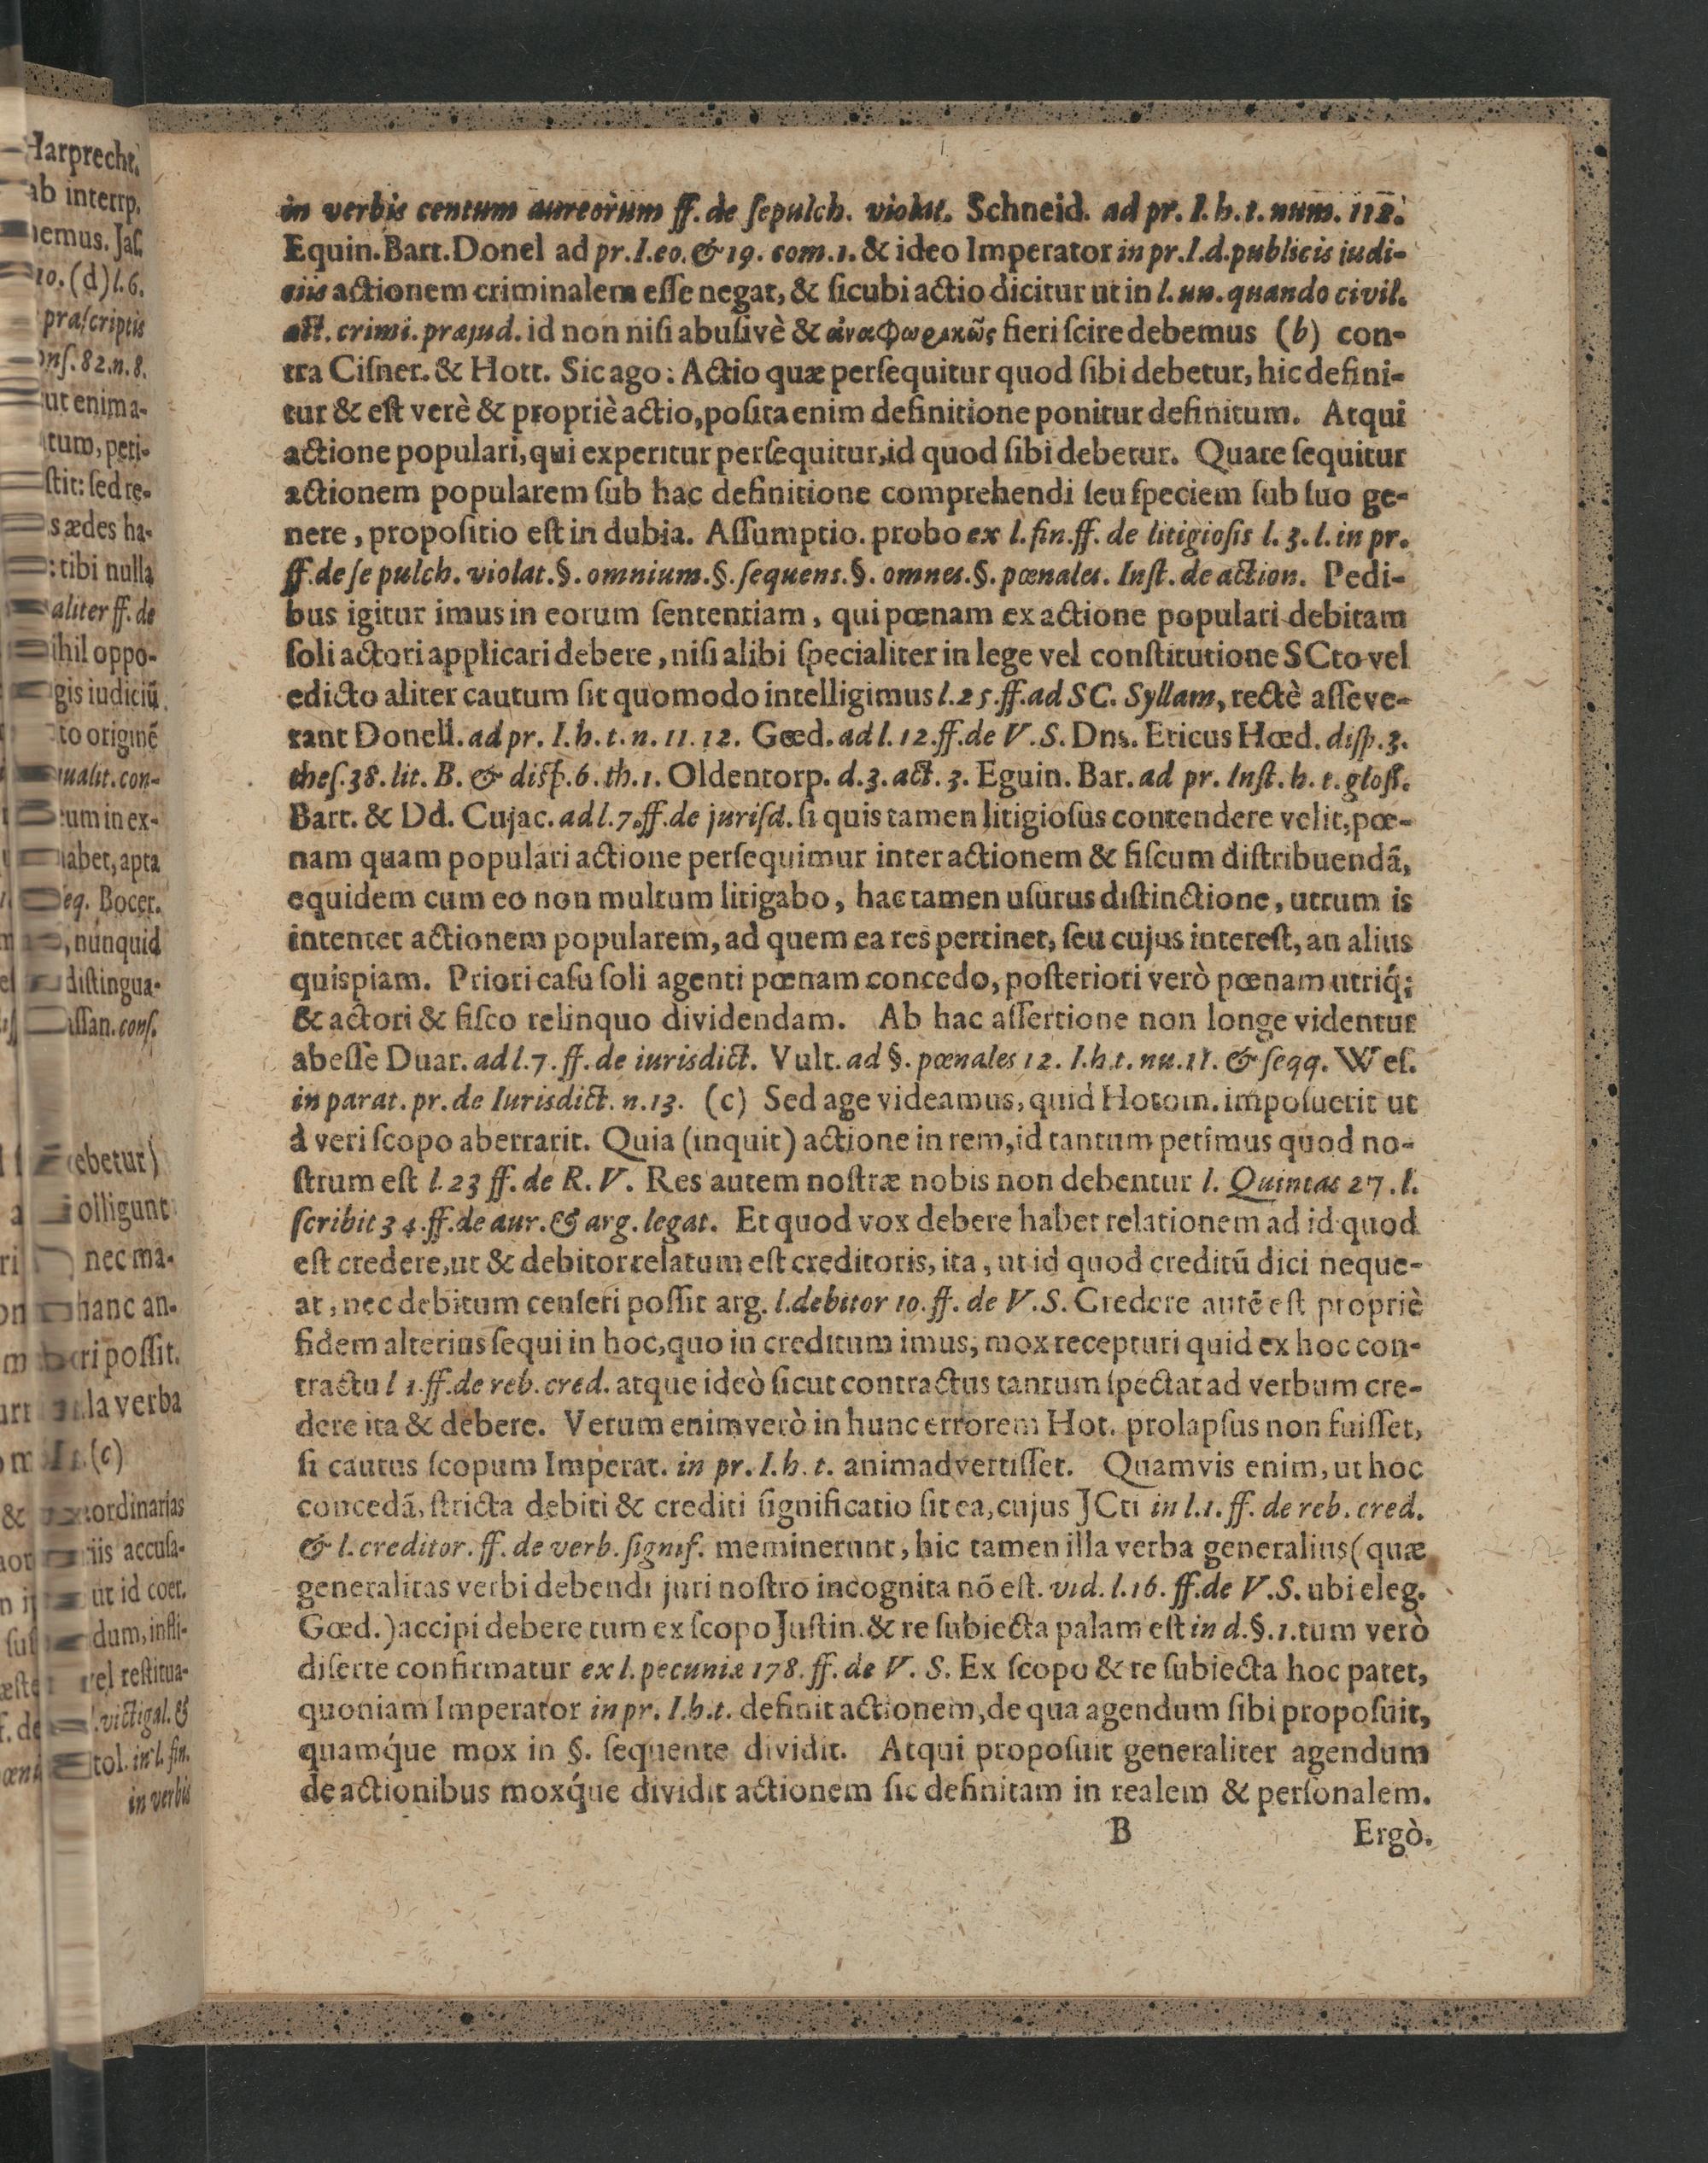 in verbis centum aureorum ff. de ſepulch. violat. Schneid. ad pr. I. h. t. num. 112.
Equin. Bart. Donel ad pr. I. eo. & 19. com. 1. & ideo Imperator in pr. I. d. publicis iudi-
ciis actionem criminalem eſſe negat, & ſicubi actio dicitur ut in l. un. quando civil.
act. crimi. præjud. id non niſi abuſivè & ἀναφωρικῶς fieri ſcire debemus (b) con-
tra Ciſner. & Hott. Sic ago: Actio quæ perſequitur quod ſibi debetur, hic defini-
tur & eſt verè & propriè actio, poſita enim definitione ponitur definitum. Atqui
actione populari, qui experitur perſequitur, id quod ſibi debetur. Quare ſequitur
actionem popularem ſub hac definitione comprehendi ſeu ſpeciem ſub ſuo ge-
nere, propoſitio eſt in dubia. Aſſumptio. probo ex l. fin. ff. de litigioſis l. 3. l. in pr.
ff. de ſe pulch. violat. §. omnium. §. ſequens. §. omnes. §. pœnales. Inſt. de action. Pedi-
bus igitur imus in eorum ſententiam, qui pœnam ex actione populari debitam
ſoli actori applicari debere, niſi alibi ſpecialiter in lege vel conſtitutione SCto vel
edicto aliter cautum ſit quomodo intelligimus l. 25. ff. ad SC. Syllam, rectè aſſeve-
rant Donell. ad pr. I. h. t. n. 11. 12. Gœd. ad l. 12. ff. de V. S. Dns. Ericus Hœd. diſp. 3.
theſ. 38. lit. B. & diſp. 6. th. 1. Oldentorp. d. 3. act. 3. Eguin. Bar. ad pr. Inſt. h. t. gloſſ.
Bart. & Dd. Cujac. ad l. 7. ff. de juriſd. ſi quis tamen litigioſus contendere velit, pœ-
nam quam populari actione perſequimur inter actionem & fiſcum diſtribuendã,
equidem cum eo non multum litigabo, hac tamen uſurus diſtinctione, utrum is
intentet actionem popularem, ad quem ea res pertinet, ſeu cujus intereſt, an alius
quispiam. Priori caſu ſoli agenti pœnam concedo, poſteriori verò pœnam utriq́;
& actori & fiſco relinquo dividendam. Ab hac aſſertione non longe videntur
abeſſe Duar. ad l. 7. ff. de iurisdict. Vult. ad §. pœnales 12. I. h. t. nu. 11. & ſeqq. Weſ.
in parat. pr. de Iurisdict. n. 13. (c) Sed age videamus, quid Hotom. impoſuerit ut
à veri ſcopo aberrarit. Quia (inquit) actione in rem, id tantum petimus quod no-
ſtrum eſt l. 23 ff. de R. V. Res autem noſtræ nobis non debentur l. Quintas 27. l.
ſcribit 34. ff. de aur. & arg. legat. Et quod vox debere habet relationem ad id quod
eſt credere, ut & debitor relatum eſt creditoris, ita, ut id quod creditũ dici neque-
at, nec debitum cenſeri poſſit arg. l. debitor 10. ff. de V. S. Credere autẽ eſt propriè
fidem alterius ſequi in hoc, quo in creditum imus, mox recepturi quid ex hoc con-
tractu l 1. ff. de reb. cred. atque ideò ſicut contractus tantum ſpectat ad verbum cre-
dere ita & debere. Verum enimverò in hunc errorem Hot. prolapſus non fuiſſet,
ſi cautus ſcopum Imperat. in pr. I. h. t. animadvertiſſet. Quamvis enim, ut hoc
concedã, ſtricta debiti & crediti ſignificatio ſit ea, cujus JCti in l. 1. ff. de reb. cred.
& l. creditor. ff. de verb. ſignif. meminerunt, hic tamen illa verba generalius (quæ
generalitas verbi debendi juri noſtro incognita nõ eſt. vid. l. 16. ff. de V. S. ubi eleg.
Gœd.) accipi debere tum ex ſcopo Juſtin. & re ſubiecta palam eſt in d. §. 1. tum verò
diſerte confirmatur ex l. pecuniæ 178. ff. de V. S. Ex ſcopo & re ſubiecta hoc patet,
quoniam Imperator in pr. I. h. t. definit actionem, de qua agendum ſibi propoſuit,
quamq́ue mox in §. ſequente dividit. Atqui propoſuit generaliter agendum
de actionibus moxq́ue dividit actionem ſic definitam in realem & perſonalem.
B Ergò.